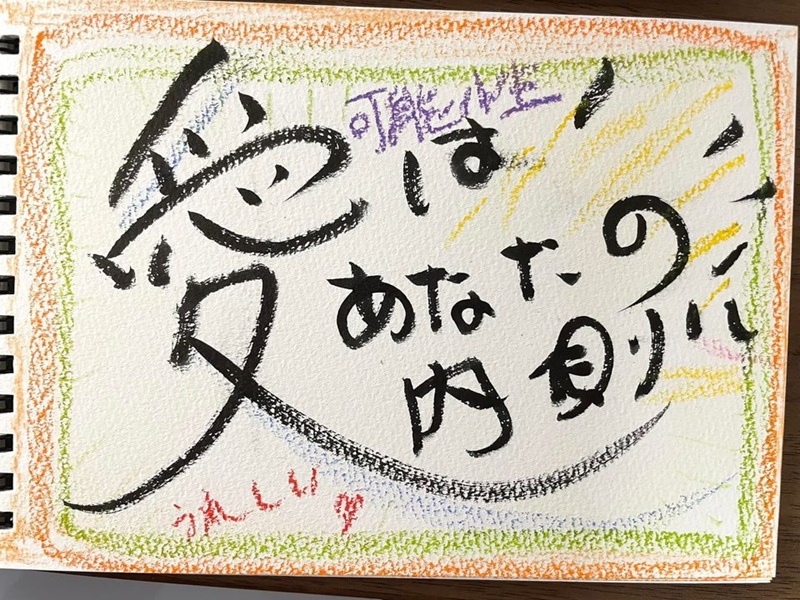 可能性
愛は
あなたの
内側に
うれしい